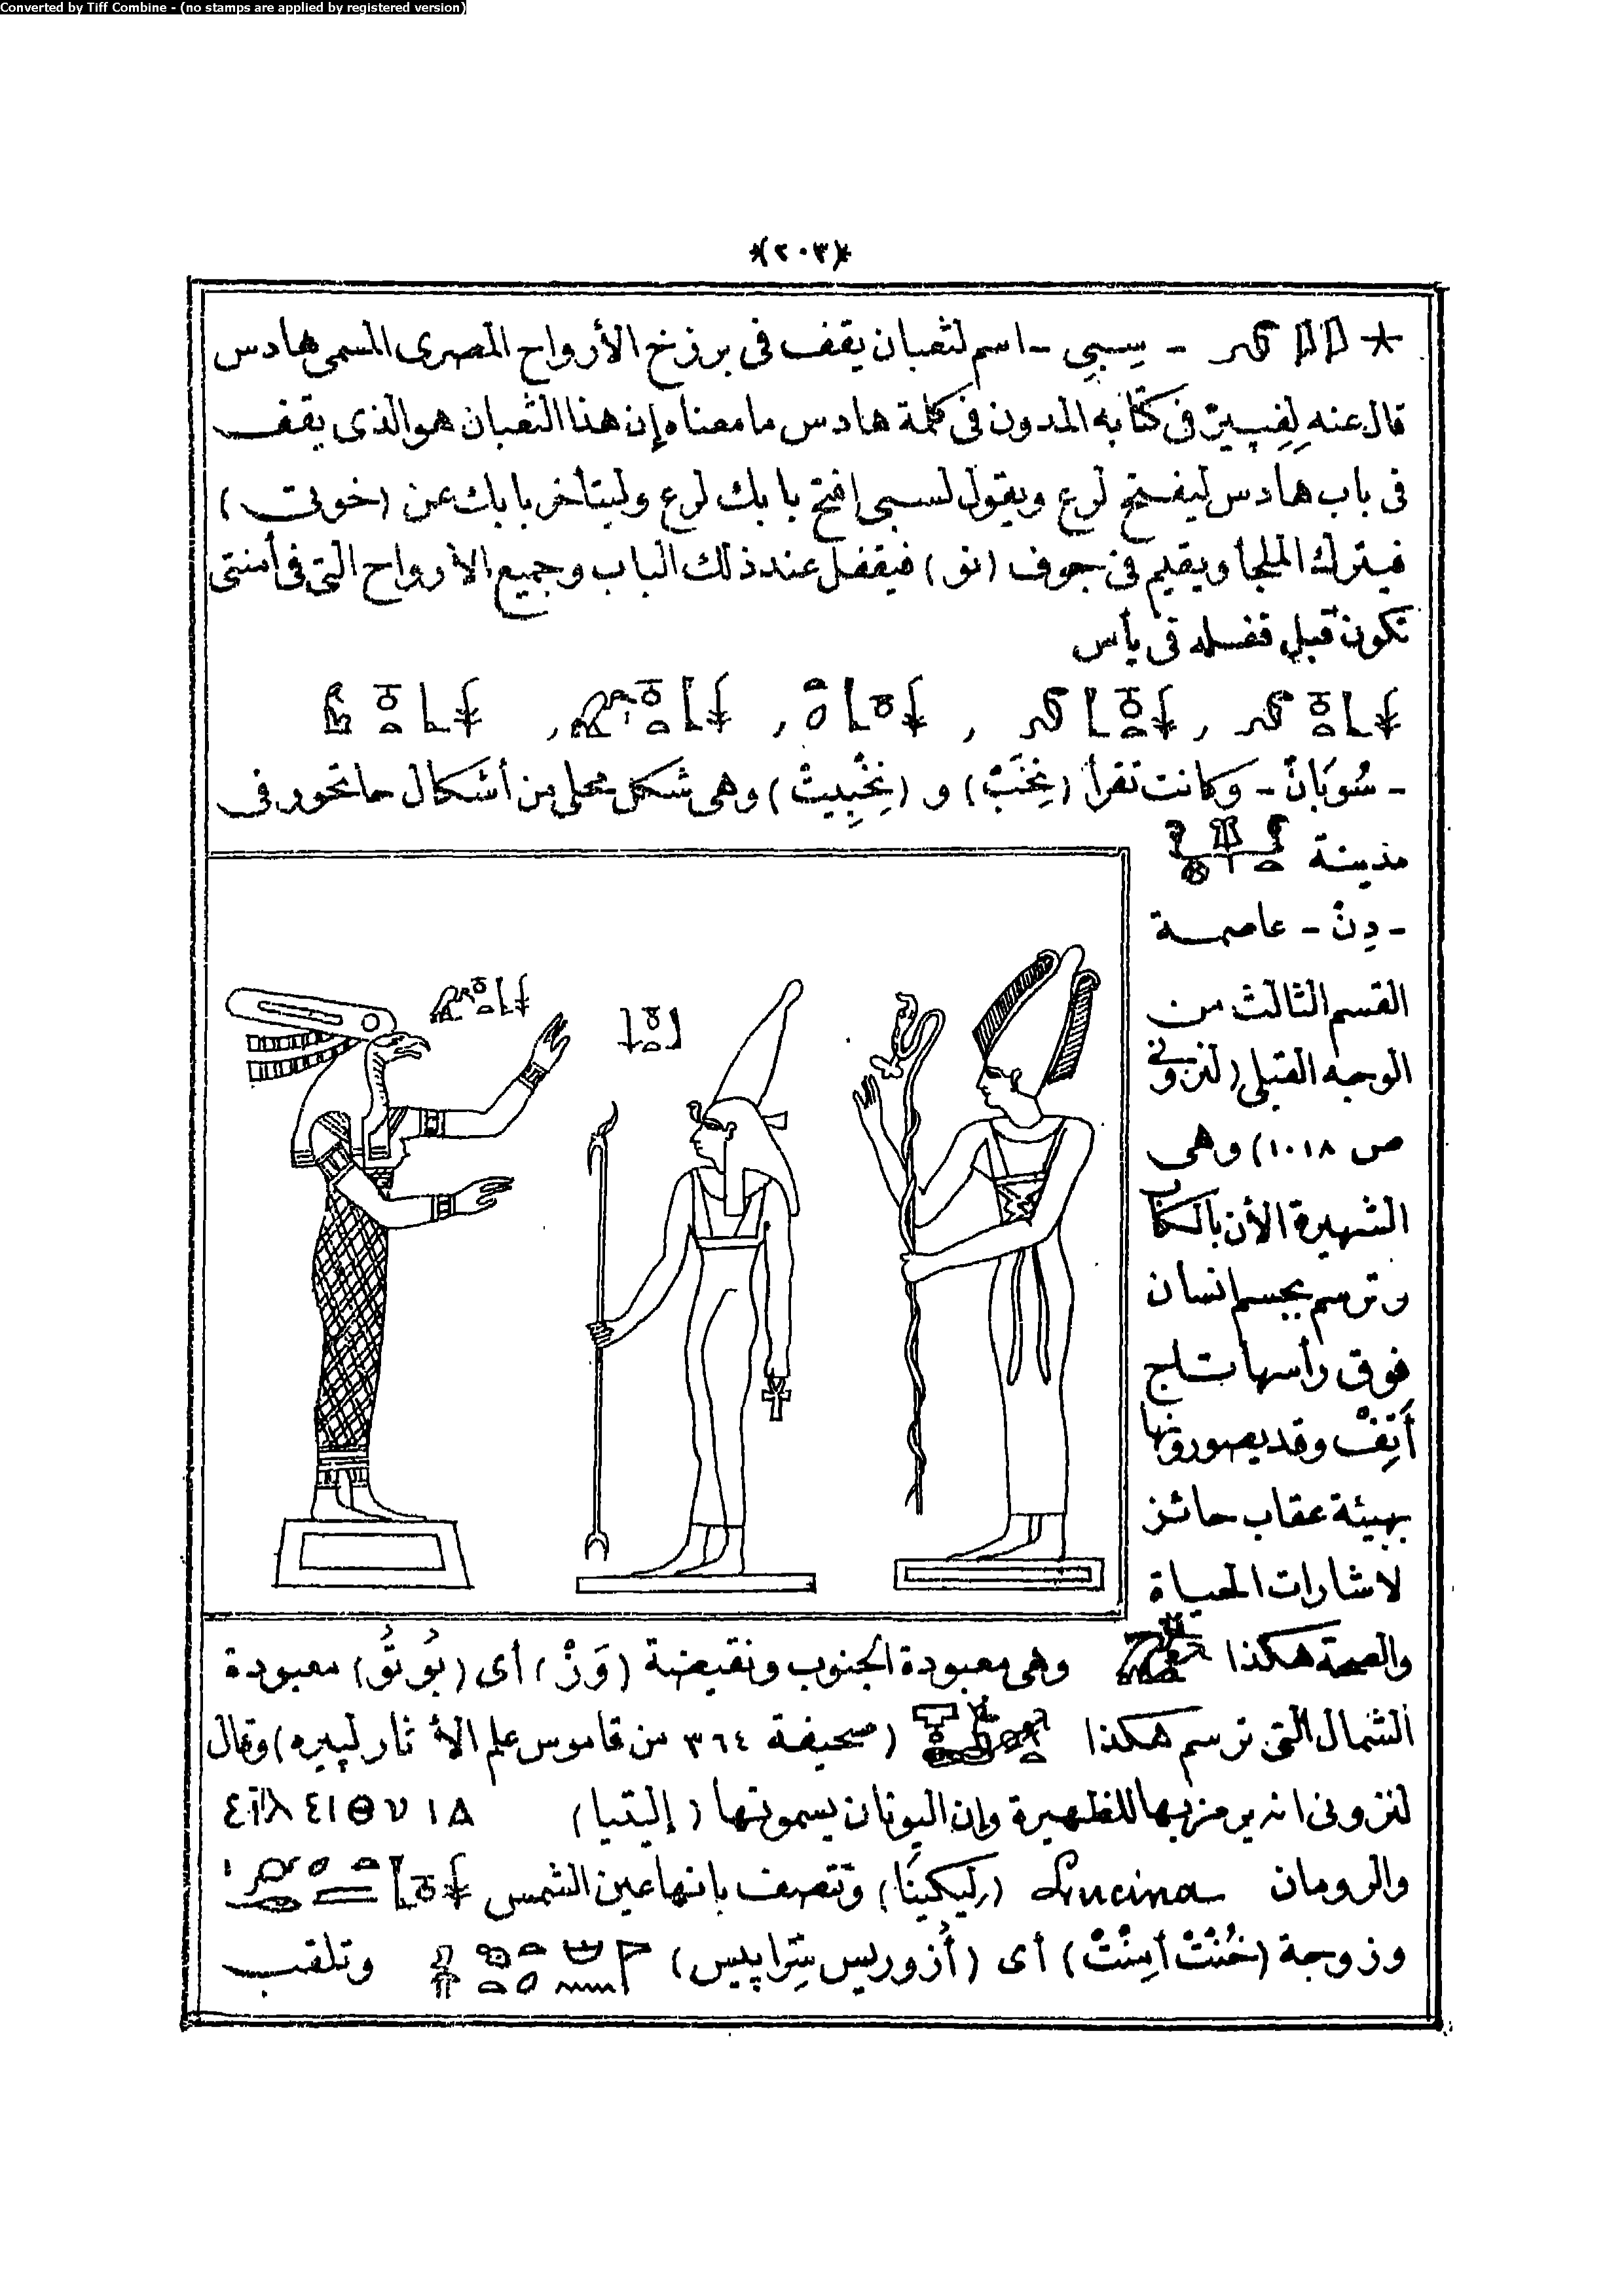 Converted by Tiff Combine - (no stamps are applied by registered version)
*(٢٠٣)*
- سِبِى - اسم لثعبان يقف فى برزخ الأرواح المصرى المسمى هادس
قال عنه لِفِبِيرْ فى كتابه المدون فى كلمة هادس ما معناه إن هذا الثعبان هو الذى يقف
فى باب هادس ليفتح لرع ويقول لسبى افتح بابك لرع وليتأخر بابك عن (خوتى)
فيترك الملجا ويقيم فى جوف (نو) فيقفل عند ذلك الباب وجميع الأرواح التى فى أمنتى
تكون قبل قفله فى يأس
- سُوبَانْ - وكانت تقرأ (نِخَبْ) و (نِخْبِيتْ) وهى شكل محلى من أشكال حاتحور فى
مدينة
- دِنْ - عاصمة
القسم الثالث من
الوجه القبلى (لنزونى
ص ١٠١٨) وهى
الشهيرة الأن بالكاب
وترسم بجسم انسان
فوق رأسها تاج
أَتِفْ وقد يصورونها
بهيئة عقاب حائز
لاشارات الحياة
والصحة هكذا وهى معبودة الجنوب ونقيضة (وَزْ) أى (بُوتُو) معبودة
الشمال التى ترسم هكذا (صحيفة ٣٦٤ من قاموس علم الأثار لپيره) وقال
لنزونى انه يرمز بها للظهيرة وإن اليونان يسمونها (إليتيا)
والرومان Lucina (ليكينَا) وتتصف بانها عين الشمس
وزوجة (خُنْتْ أمِنْتْ) أى (أُزوريس سِّرا پيس) وتلقب